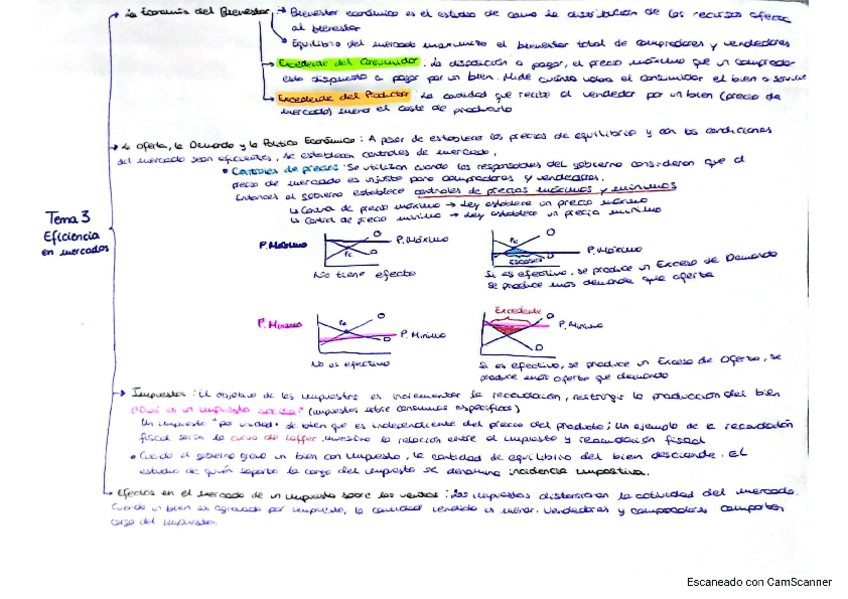 La Economía del Bienestar → Bienestar económico es el estudio de como la distribución de los recursos afecta
al bienestar
Equilibrio del mercado maximiza el bienestar total de compradores y vendedores
Excedente del Consumidor: La disposición a pagar, el precio máximo que un comprador
esta dispuesto a pagar por un bien. Mide cuánto valora el consumidor el bien o servicio
Excedente del Productor: La cantidad que recibe el vendedor por un bien (precio de
mercado) menos el coste de producirlo
La Oferta, la Demanda y la Política Económica: A pesar de establecer los precios de equilibrio y con las condiciones
del mercado sean eficientes, se establecen controles de mercado.
• Controles de precios: Se utilizan cuando los responsables del gobierno consideran que el
precio de mercado es injusto para compradores y vendedores.
Entonces el gobierno establece controles de precios máximos y mínimos
↳ Control de precio máximo → Ley establece un precio máximo
↳ Control de precio mínimo → Ley establece un precio mínimo
Tema 3
Eficiencia
en mercados
P. Máximo
O
P. Máximo
Pe
D
No tiene efecto
O
Pe
P. Máximo
escasez
D
Si es efectivo, se produce un Exceso de Demanda
se produce más demanda que oferta
P. Mínimo
O
Pe
P. Mínimo
D
No es efectivo
Excedente
O
P. Mínimo
D
Si es efectivo, se produce un Exceso de Oferta, se
produce más oferta que demanda
Impuestos: El objetivo de los impuestos es incrementar la recaudación, restringir la producción del bien
¿Qué es un impuesto ? (impuestos sobre consumos específicos)
Un impuesto "por unidad" de bien que es independiente del precio del producto; Un ejemplo de la recaudación
fiscal seria la curva de laffer, muestra la relación entre el impuesto y recaudación fiscal
• Cuando el gobierno grava un bien con impuesto, la cantidad de equilibrio del bien desciende. El
estudio de quién soporta la carga del impuesto se denomina incidencia impositiva.
Efectos en el mercado de un impuesto sobre las ventas: Los impuestos distorsionan la actividad del mercado.
Cuando un bien es gravado por impuesto, la cantidad vendida es menor. Vendedores y compradores comparten
carga del impuesto.
Escaneado con CamScanner